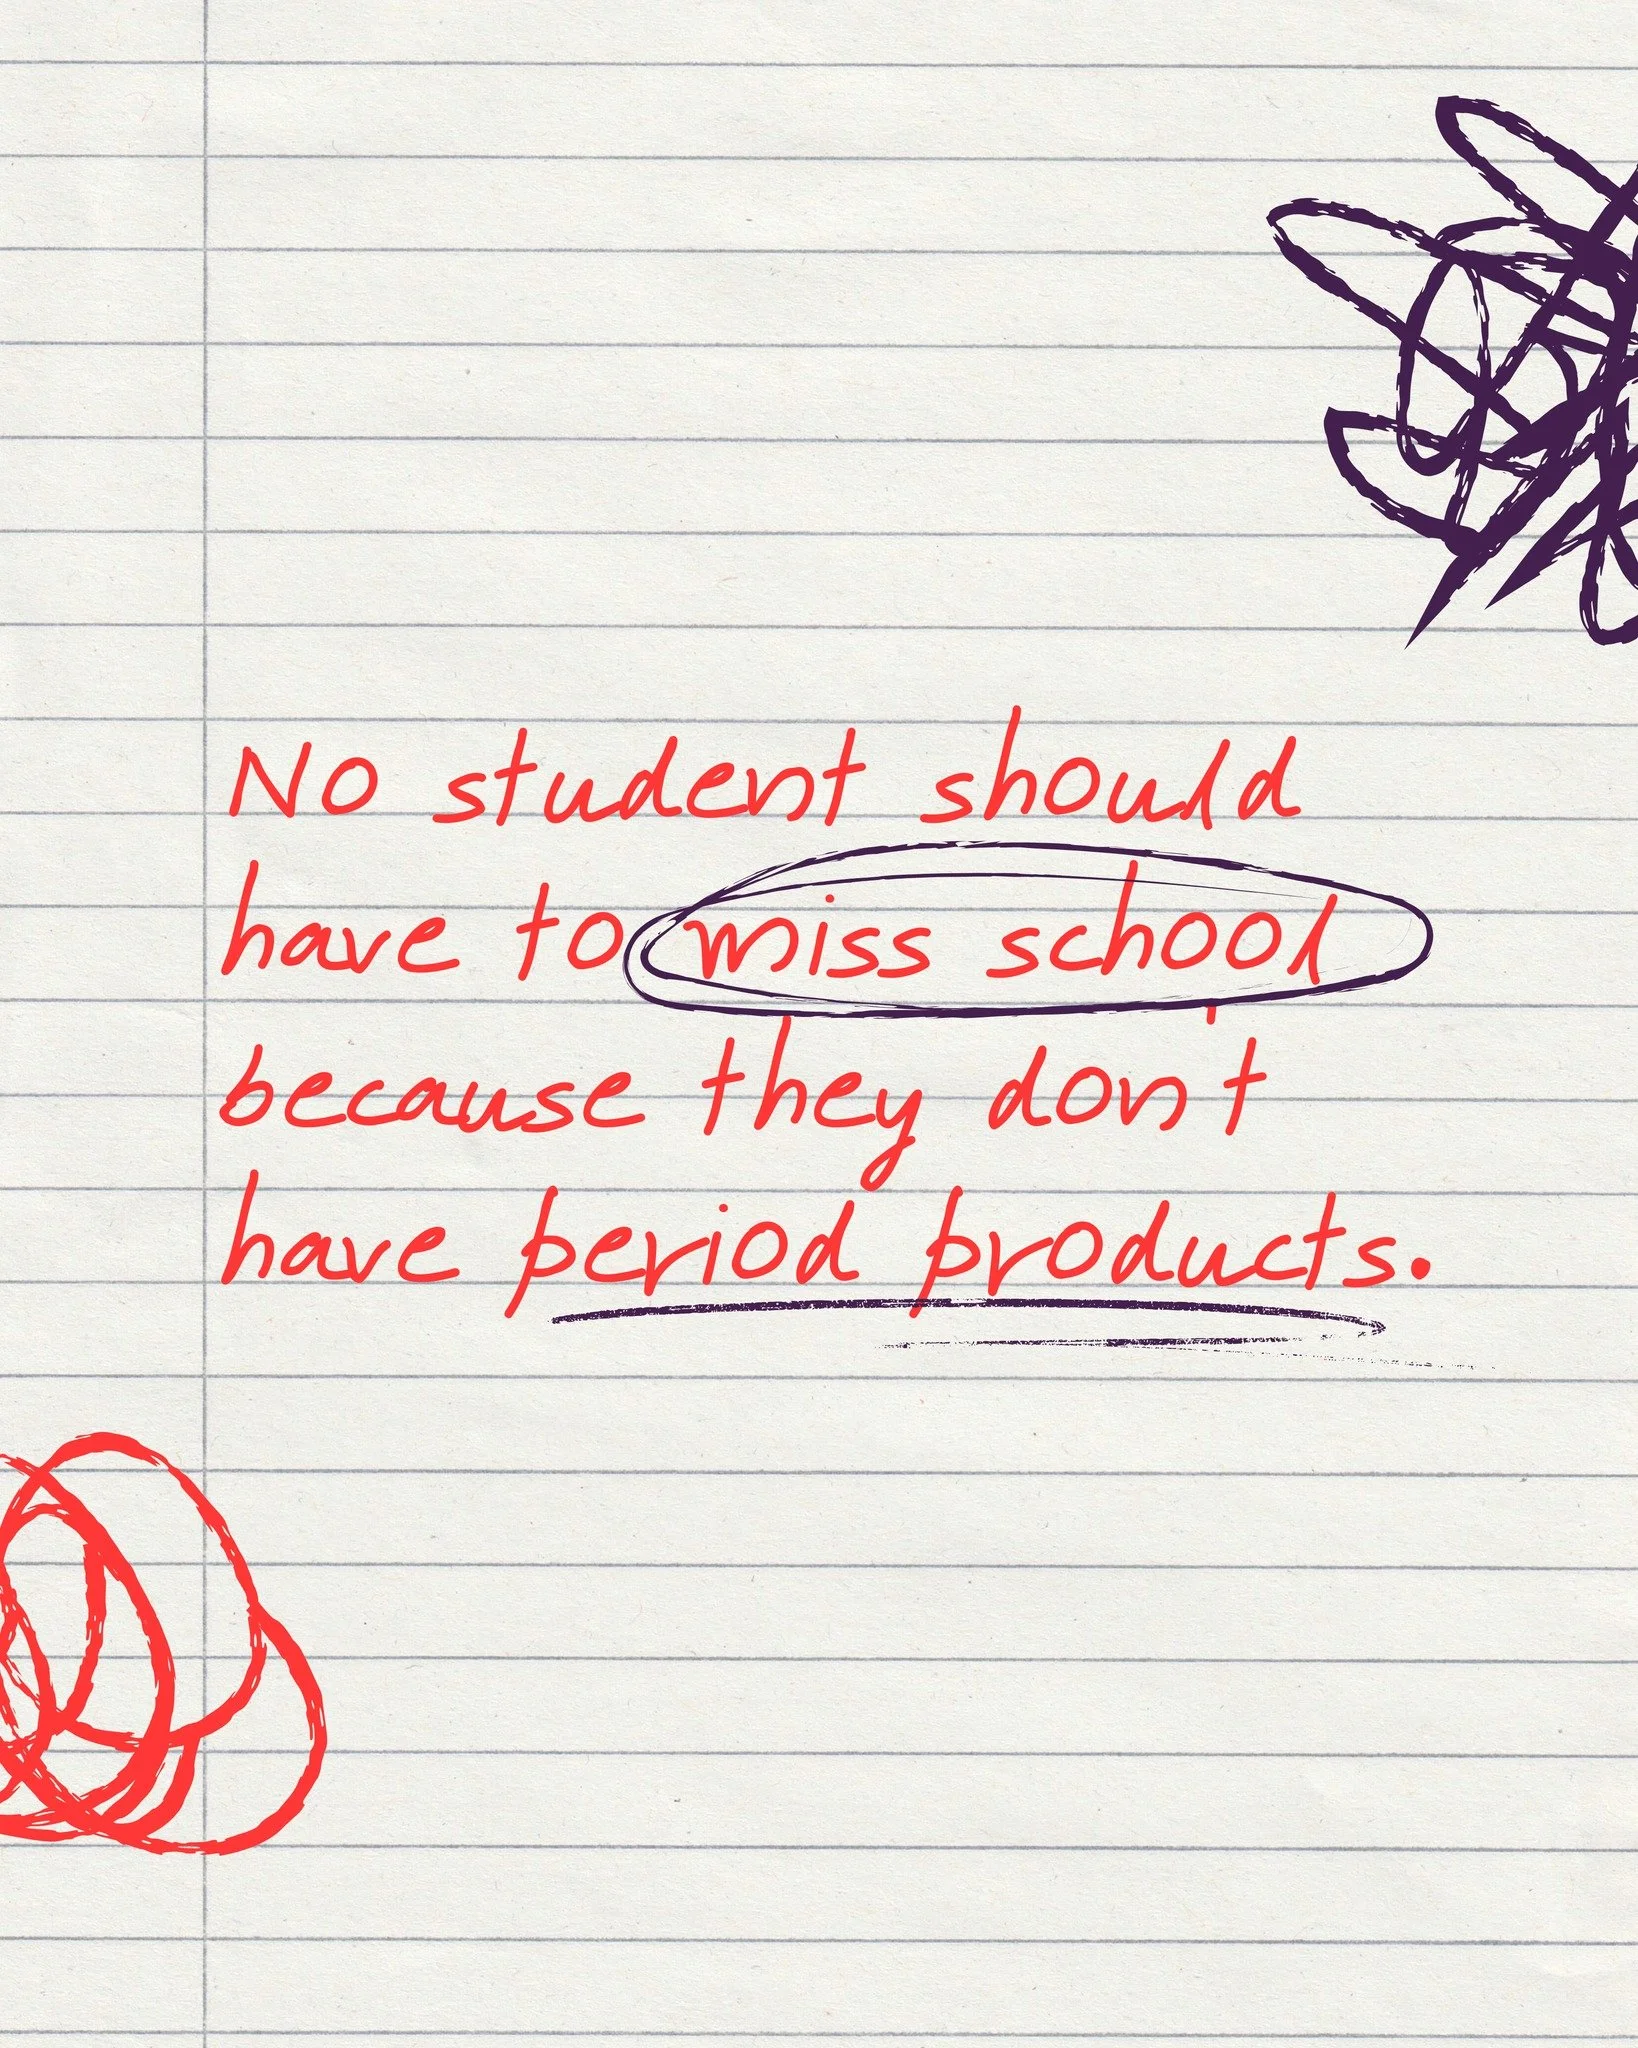 No student should
have to miss school
because they don't
have period products.